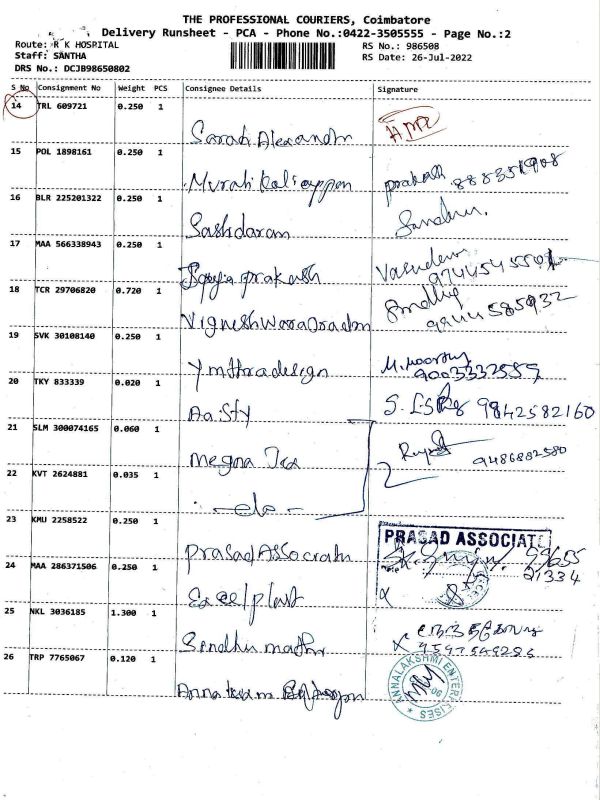 THE PROFESSIONAL COURIERS, Coimbatore
Delivery Runsheet - PCA - Phone No.:0422-3505555 - Page No.:2
Route: R K HOSPITAL
RS No.: 986508
Staff: SANTHA
RS Date: 26-Jul-2022
DRS No.: DCJB98650802
S No Consignment No Weight PCS Consignee Details Signature
14 TRL 609721 0.250 1
Sarah Alexander
15 POL 1898161 0.250 1
Murali Kaliappan
16 BLR 225201322 0.250 1
Sashdaram
17 MAA 566338943 0.250 1
prakash
Vasudevan
18 TCR 29706820 0.720 1
Sandhya
19 SVK 30108140 0.250 1
Ymthra design
M. Moorthy
20 TKY 833339 0.020 1
9842582160
21 SLM 300074165 0.060 1
Megna Tex
9486882580
22 KVT 2624881 0.035 1
- do -
23 KMU 2258522 0.250 1
Prasad Associates
PRASAD ASSOCIAT
24 MAA 286371506 0.250 1
Excel plast
25 NKL 3036185 1.300 1
Sendhu mathi
26 TRP 7765067 0.120 1
ANNALAKSHMI ENTERPRISES